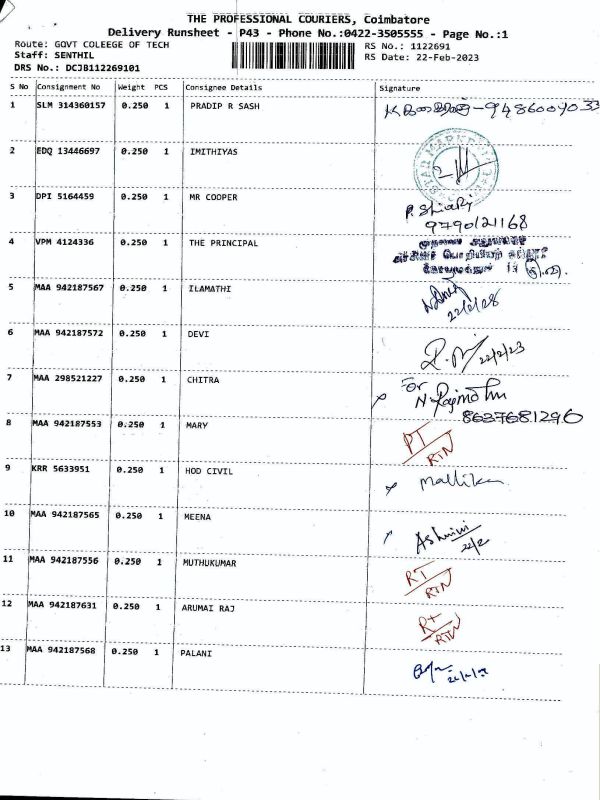 THE PROFESSIONAL COURIERS, Coimbatore
Delivery Runsheet - P43 - Phone No.:0422-3505555 - Page No.:1
Route: GOVT COLEEGE OF TECH
Staff: SENTHIL
DRS No.: DCJB112269101
RS No.: 1122691
RS Date: 22-Feb-2023
S No Consignment No Weight PCS Consignee Details Signature
1 SLM 314360157 0.250 1 PRADIP R SASH 9486009033
2 EDQ 13446697 0.250 1 IMITHIYAS
3 DPI 5164459 0.250 1 MR COOPER
9790121168
4 VPM 4124336 0.250 1 THE PRINCIPAL
5 MAA 942187567 0.250 1 ILAMATHI
6 MAA 942187572 0.250 1 DEVI 22/2/23
7 MAA 298521227 0.250 1 CHITRA for
8637681296
8 MAA 942187553 0.250 1 MARY
RTN
9 KRR 5633951 0.250 1 HOD CIVIL Mallika
10 MAA 942187565 0.250 1 MEENA Ashwini
22/2
11 MAA 942187556 0.250 1 MUTHUKUMAR RT
RTN
12 MAA 942187631 0.250 1 ARUMAI RAJ
RTN
13 MAA 942187568 0.250 1 PALANI